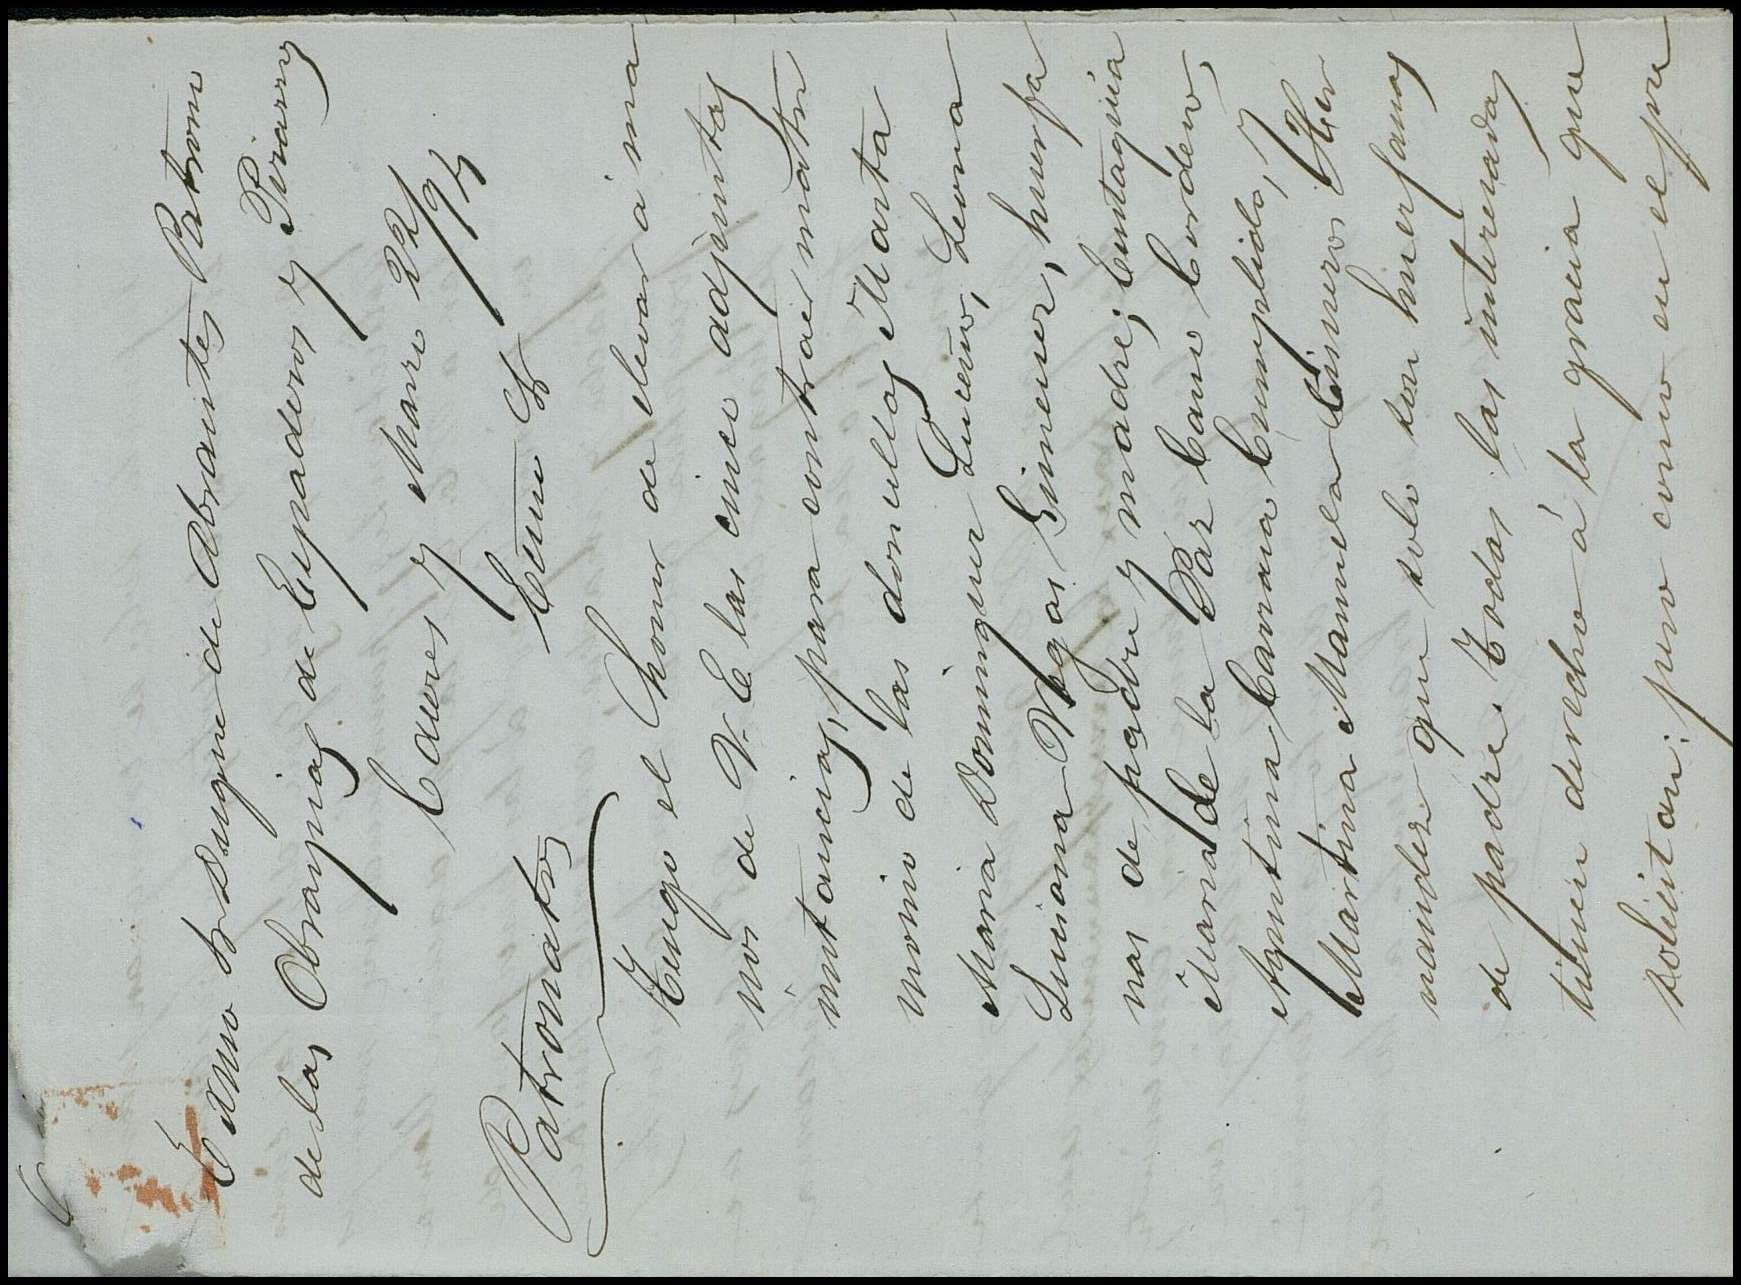 Exmo Sr Duque de Abrantes Patrono
de las Obrapias de Espaderos y Pizarros
Caceres y Marzo 22/97
Exmo Sr
Patronatos
Tengo el honor de elevar á ma
nos de V. E las cinco adjuntas
instancias, para contraer matri
monio de las doncellas Marta
Maria Dominguez Luceño, Leona
Luciana Vegas Gimenez, huerfa
nas de padre y madre; Eustaquia
Maria de la Paz Cano Cordero,
Agustina Carrasca Cumplido, y
Martina Manuela Cisneros Her
nandez que solo son huerfanas
de padre. Todas las interesadas
tienen derecho á la gracia que
solicitan; pero como en el pre